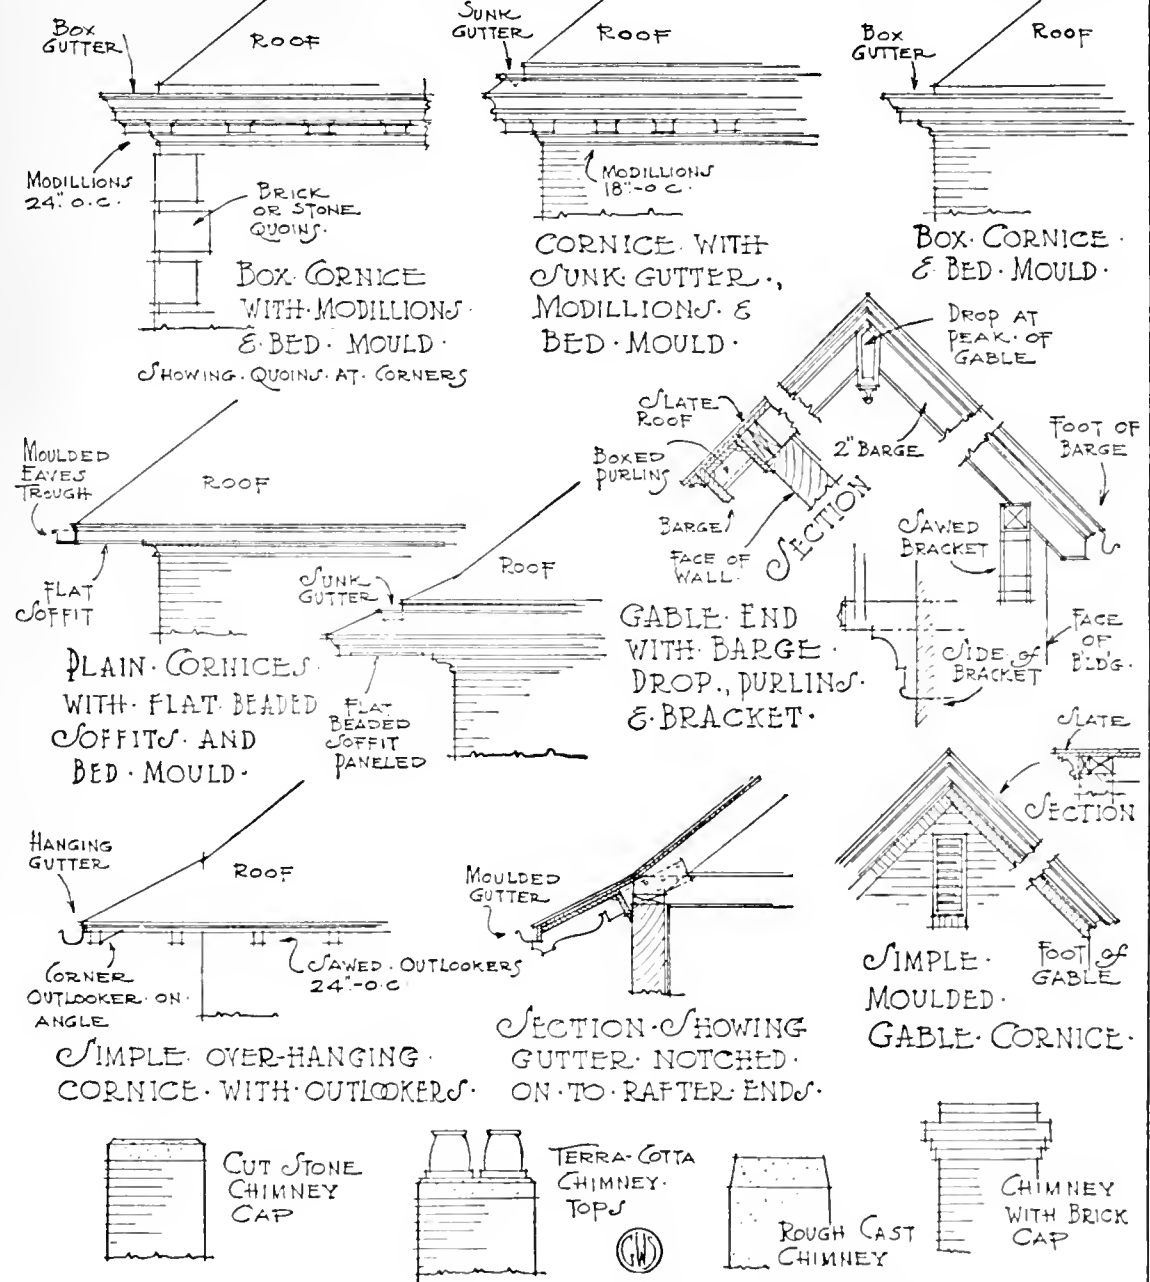 BOX
GUTTER
ROOF
MODILLIONS
24" O.C.
BRICK
OR STONE
QUOINS.
BOX. CORNICE
WITH. MODILLIONS.
& BED. MOULD.
SHOWING. QUOINS. AT. CORNERS
SUNK
GUTTER
ROOF
MODILLIONS
18"-O.C.
CORNICE. WITH
SUNK. GUTTER.,
MODILLIONS. &
BED. MOULD.
BOX
GUTTER
ROOF
BOX. CORNICE.
& BED. MOULD.
MOULDED
EAVES
TROUGH
ROOF
FLAT
SOFFIT
SUNK
GUTTER
ROOF
FLAT
BEADED
SOFFIT
PANELED
PLAIN. CORNICES.
WITH. FLAT. BEADED
SOFFITS. AND
BED. MOULD.
DROP AT
PEAK. OF
GABLE
SLATE
ROOF
BOXED
PURLINS
2" BARGE
FOOT OF
BARGE
BARGE
FACE OF
WALL.
SECTION
SAWED
BRACKET
SIDE of
BRACKET
FACE
OF
BL'D'G.
GABLE. END
WITH. BARGE.
DROP., PURLINS.
& BRACKET.
HANGING
GUTTER
ROOF
CORNER
OUTLOOKER. ON.
ANGLE
SAWED. OUTLOOKERS
24"-O.C
SIMPLE. OVER-HANGING.
CORNICE. WITH. OUTLOOKERS.
MOULDED
GUTTER
SECTION. SHOWING
GUTTER. NOTCHED.
ON. TO. RAFTER. ENDS.
SLATE
SECTION
FOOT of
GABLE
SIMPLE.
MOULDED.
GABLE. CORNICE.
CUT STONE
CHIMNEY
CAP
TERRA-COTTA
CHIMNEY.
TOPS
GWS
ROUGH CAST
CHIMNEY
CHIMNEY
WITH BRICK
CAP